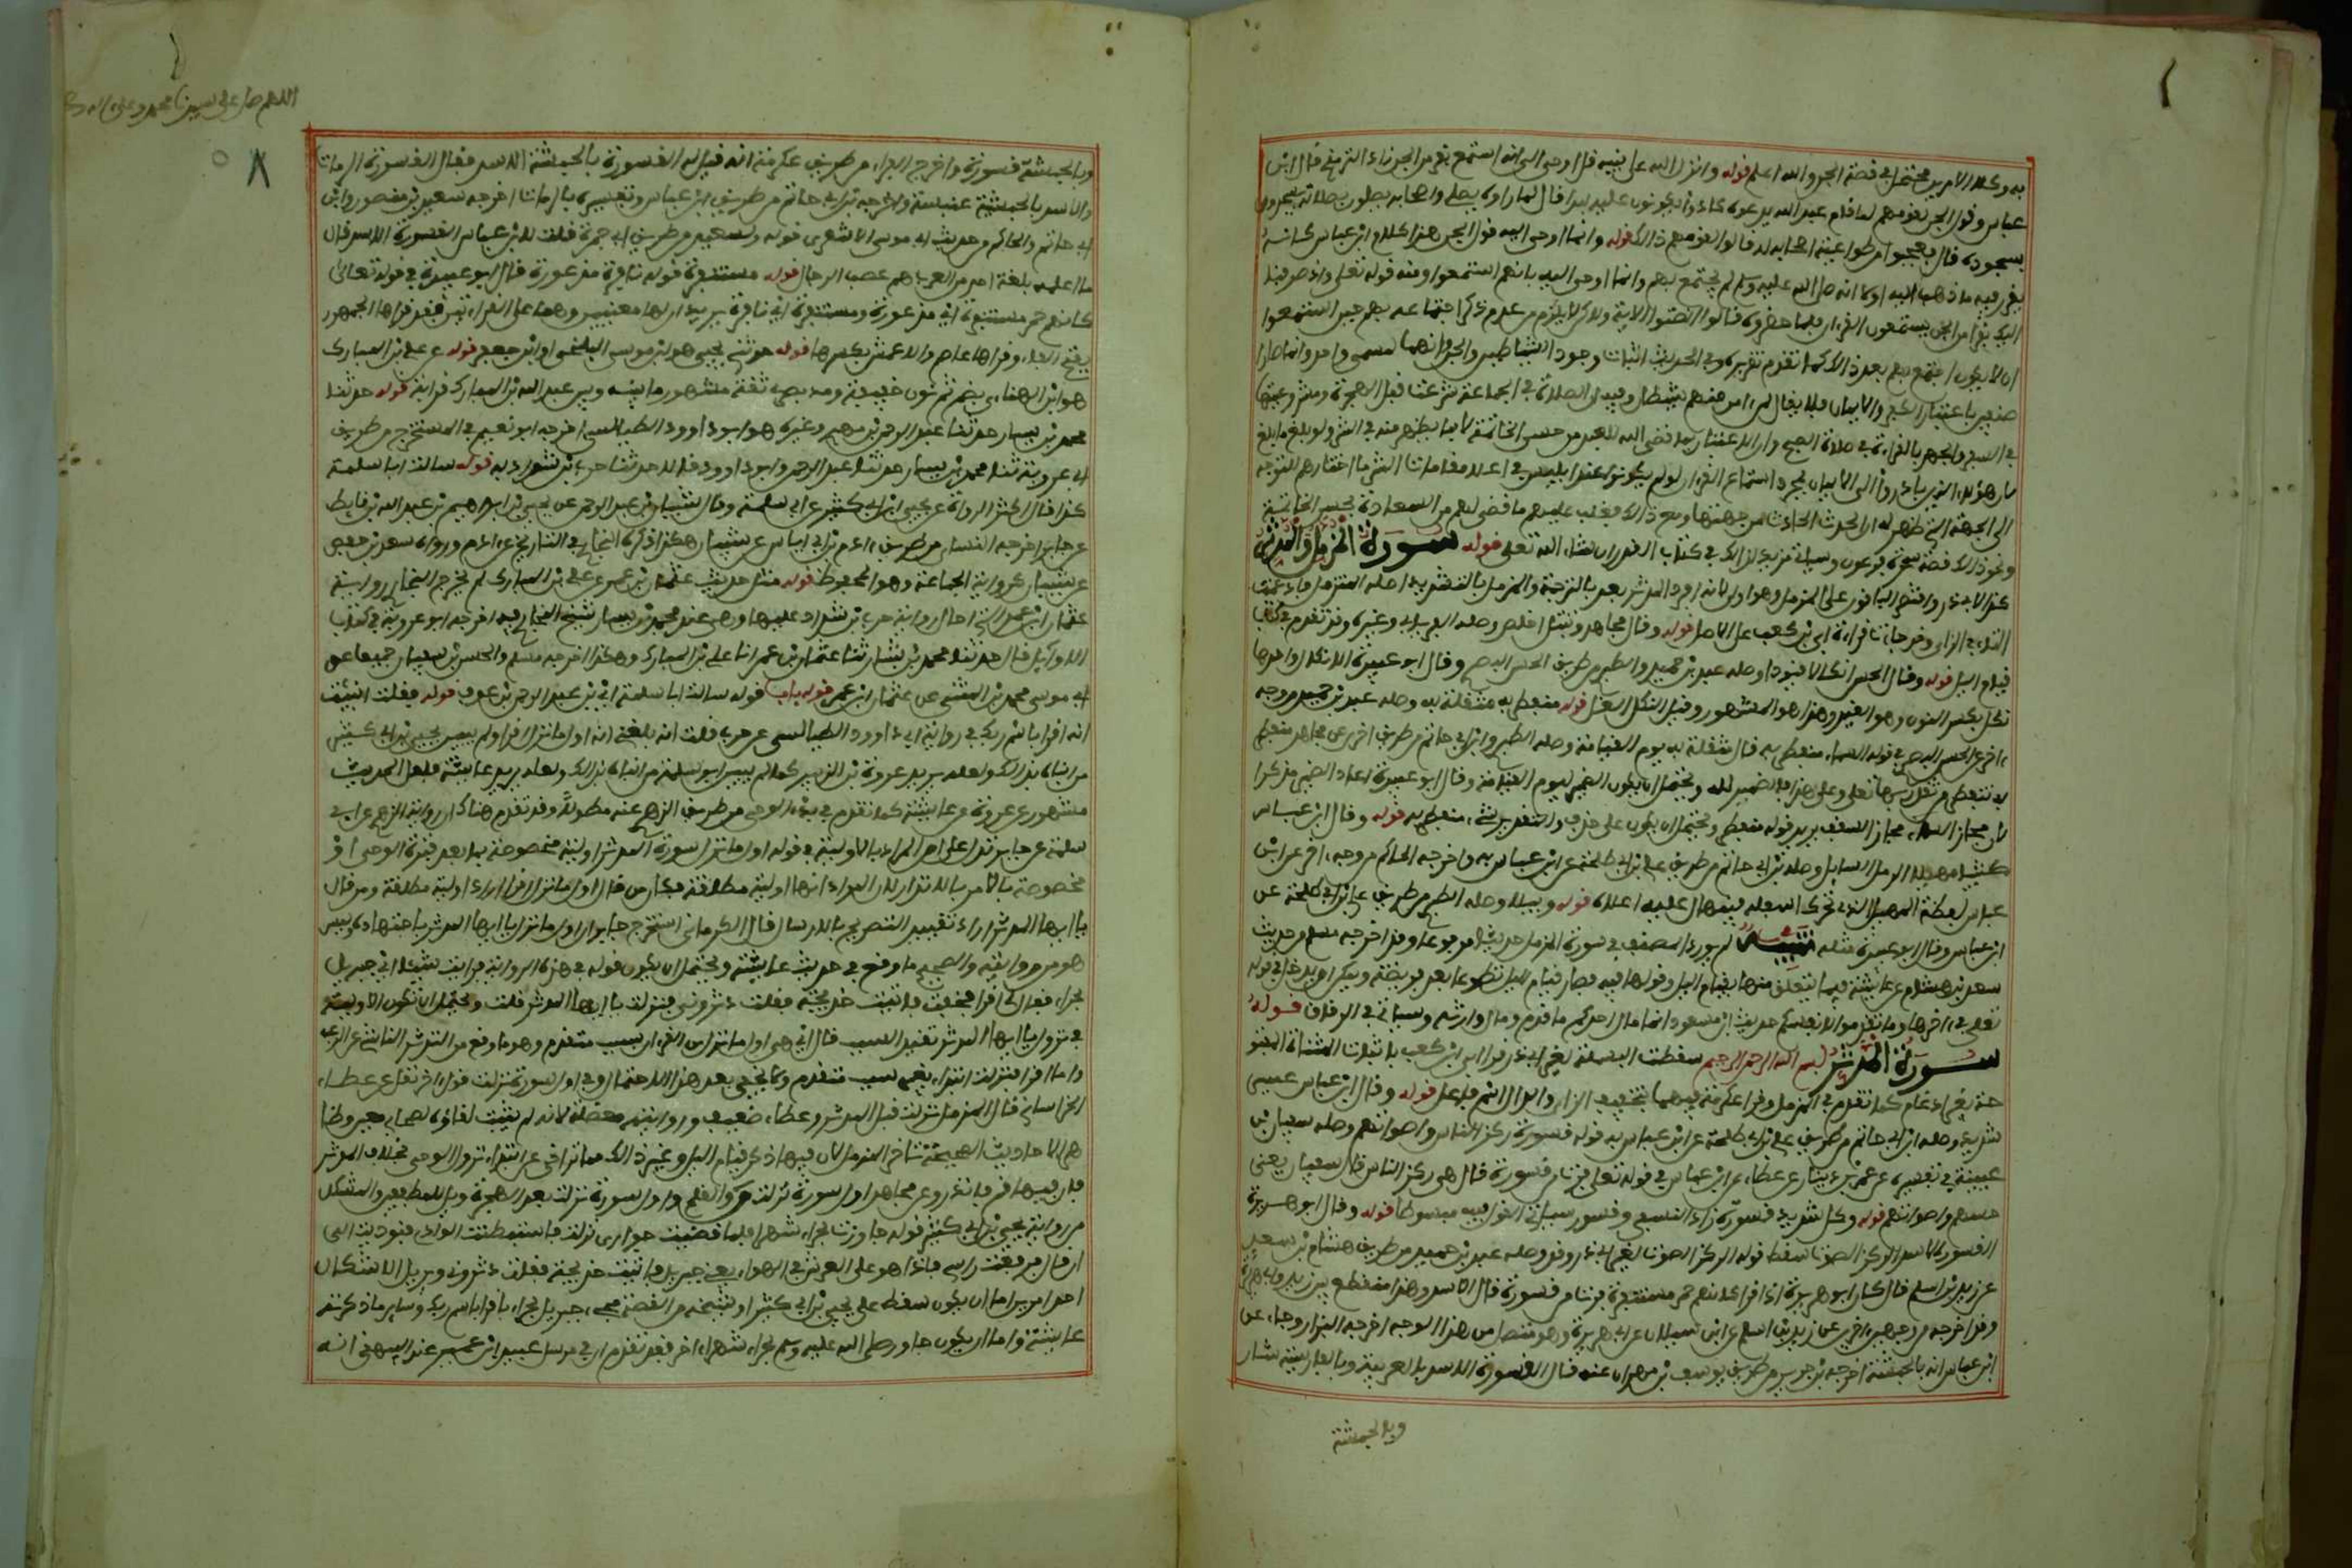 به وكلا الامرين محتمل في قصة الجن والله اعلم قوله وانزل الله على نبيه قل اوحي الي انه استمع نفر من الجن زاد الترمذي قال ابن
عباس وقول الجن لقومهم لما قام عبد الله يدعوه كادوا يكونون عليه لبدا قال لما راوه يصلي واصحابه يصلون بصلاته يسجدون
بسجوده قال فعجبوا من طواعية اصحابه له قالوا لقومهم ذلك قوله وانما اوحي اليه قول الجن هذا كلام ابن عباس كانه
يقرر فيه ما ذهب اليه اولا انه صلى الله عليه وسلم لم يجتمع بهم وانما اوحي اليه بانهم استمعوا ومنه قوله تعلى واذ صرفنا
اليك نفرا من الجن يستمعون القرءان فلما حضروه قالوا انصتوا الاية ولاكن لا يلزم من عدم ذكر اجتماعه بهم حين استمعوا
ان لا يكون اجتمع بهم بعد ذلك كما تقدم تقريره وفي الحديث اثبات وجود الشياطين والجن وانهما لمسمى واحد وانما صارا
صنفين باعتبار الكفر والايمان فلا يقال لمن امن منهم شيطان وفيه ان الصلاة في الجماعة شرعت قبل الهجرة ومشروعيتها
في السفر والجهر بالقراءة في صلاة الصبح وان الاعتبار بما قضى الله للعبد من حسن الخاتمة لا بما يظهر منه في الشر ولو بلغ ما بلغ
لان هؤلاء الذين بادروا الى الايمان بمجرد استماع القرءان لو لم يكونوا عند ابليس في اعلا مقامات الشر ما اختارهم للتوجه
الى الجهة التي ظهر له ان الحدث الحادث من جهتها ومع ذلك فغلب عليهم ما قضى لهم من السعادة بحسن الخاتمة
ونحو ذلك قصة سحرة فرعون وسياتي مزيد لذلك في كتاب القدر ان شاء الله تعلى قوله سورة المزمل والمدثر
كذا لابي ذر واقتصر الباقون على المزمل وهو اولى لانه افرد المدثر بعد بالترجمة والمزمل بالتشديد اصله المتزمل فادغمت
التاء في الزاي وقد جاءت قراءة ابي بن كعب على الاصل قوله وقال مجاهد وتبتل اخلص وصله الفريابي وغيره وقد تقدم في كتاب
قيام اليل قوله وقال الحسن انكالا قيودا وصله عبد بن حميد والطبري من طريق الحسن البصري وقال ابو عبيدة الانكال واحدها
نكل بكسر النون وهو القيد وهذا هو المشهور وقيل النكل الغل قوله منفطر به مثقلة به وصله عبد بن حميد من وجه
ءاخر عن الحسن البصري في قوله السماء منفطر به قال مثقلة به يوم القيامة وصله الطبري وابن ابي حاتم من طريق اخرى عن مجاهد منفطر
به تنفطر من ثقل ربها تعلى وعلى هذا فالضمير لله ويحتمل ان يكون الضمير ليوم القيامة وقال ابو عبيدة اعاد الضمير مذكرا
لان مجاز السماء مجاز السقف يريد قوله منفطر ويحتمل ان يكون على حذف والتقدير شيء منفطر به قوله وقال ابن عباس
كثيبا مهيلا الرمل السايل وصله ابن ابي حاتم من طريق علي بن ابي طلحة عن ابن عباس به واخرجه الحاكم من وجه ءاخر عن ابن
عباس لفظه المهيل الذي تحرك اسفله فينهال عليه اعلاه قوله وبيلا وصله الطبري من طريق علي بن ابي طلحة عن
ابن عباس وقال ابو عبيدة مثله تنبيه لم يورد المصنف في سورة المزمل حديثا مرفوعا وقد اخرجه مسلم حديث
سعد بن هشام عن عايشة فيما يتعلق منها بقيام اليل وقولها فيه فصار قيام اليل تطوعا بعد فريضة ويمكن ان يدخل في قوله
تعلى في ءاخرها وما تقدموا لانفسكم حديث ابن مسعود انما مال احدكم ما قدم ومال وارثه وسياتي في الرقاق قوله
سورة المدثر بسم الله الرحمن الرحيم سقطت البسملة لغير ابي ذر قرا ابي ابن كعب باثبات المثناة المفتو
حة بغير ادغام كما تقدم في المزمل وقرا عكرمة فيهما بتخفيف الزاي والدال اسم فاعل قوله وقال ابن عباس عسير
شديد وصله ابن ابي حاتم من طريق علي بن ابي طلحة عن ابن عباس به قوله قسورة ركز الناس واصواتهم وصله سفيان بن
عيينة في تفسيره عن عمرو بن دينار عن عطاء عن ابن عباس في قوله تعلى فرت من قسورة قال هي ركز الناس قال سفيان يعني
حسهم واصواتهم قوله وكل شديد قسورة زاد النسفي وقسور سياتي القول فيه مبسوطا قوله وقال ابو هريرة
القسورة الاسد الركز الصوت سقط قوله الركز الصوت لغير ابي ذر وقد وصله عبد بن حميد من طريق هشام بن سعد
عن زيد بن اسلم قال كان ابو هريرة اذا قرا كانهم حمر مستنفرة فرت من قسورة قال الاسد وهذا منقطع بين زيد وابي هريرة
وقد اخرجه من وجهين اخرين عن زيد بن اسلم عن ابن سيلان عن ابي هريرة وهو متصل من هذا الوجه اخرجه البزار وجاء عن
ابن عباس انه بالحبشة اخرجه ابن جرير من طريق يوسف بن مهران عنه قال القسورة الاسد بالعربية وبالفارسية شار
وبالحبشة
اللهم صل على سيدنا محمد وعلى اله
وبالحبشة قسورة واخرج الفراء من طريق عكرمة انه قيل له القسورة بالحبشة الاسد فقال القسورة الرماة
والاسد بالحبشة عنبسة واخرجه ابن ابي حاتم من طريق ابن عباس وتفسيره بالرماة اخرجه سعيد بن منصور وابن
ابي حاتم والحاكم من حديث ابي موسى الاشعري قوله ولسعيد من طريق ابي حمزة قلت لابن عباس القسورة الاسد قال
ما اعلمه بلغة احد من العرب هم عصب الرجال قوله مستنفرة قوله نافرة مذعورة قال ابو عبيدة في قوله تعالى
كانهم حمر مستنفرة اي مذعورة ومستنفرة اي نافرة يريد ان لها معنيين وهما على القراءتين فقد قراها الجمهور
بفتح الفاء وقراها عاصم والاعمش بكسرها قوله حدثني يحيى هو ابن موسى البلخي او ابن جعفر قوله عن علي بن المبارك
هو ابن الهناءي بضم ثم نون خفيفة ومد بصري ثقة مشهور ما بينه وبين عبد الله بن المبارك قرابة قوله حدثنا
محمد بن بشار حدثنا عبد الرحمن بن مهدي وغيره هو ابو داوود الطيالسي اخرجه ابو نعيم في المستخرج من طريق
ابي عروبة ثنا محمد بن بشار حدثنا عبد الرحمن وابو داوود قالا حدثنا حرب بن شداد به قوله سالت ابا سلمة
كذا قال اكثر الرواة عن يحيى ابن ابي كثير عن ابي سلمة وقال شيبان بن عبد الرحمن عن يحيى بن ابراهيم بن عبد الله بن قارظ
عن جابر اخرجه النساي من طريق ءادم بن ابي اياس عن شيبان هكذا ذكره البخاري في التاريخ عن ءادم ورواه سعد بن حفص
عن شيبان كرواية الجماعة وهو المحفوظ قوله مثل حديث عثمان بن عمر عن علي بن المبارك لم يخرج البخاري رواية
عثمان ابن عمر التي احال رواية حرب بن شداد عليها وهي عند محمد بن بشار شيخ البخاري فيه اخرجه ابو عروبة في كتاب
الاوايل قال حدثنا محمد بن بشار ثنا عثمان بن عمر انا علي بن المبارك وهكذا اخرجه مسلم والحسن بن سفيان جميعا عن
ابي موسى محمد بن المثنى عن عثمان ابن عمر قوله باب قوله سالت ابا سلمة اي ابن عبد الرحمن بن عوف قوله فقلت انبئت
انه اقرا باسم ربك في رواية ابي داوود الطيالسي عن حرب قلت انه بلغني انه اول ما نزل اقرا ولم يبين يحيى بن ابي كثير
من انباه بذلك ولعله يريد عروة بن الزبير كما لم يبين ابو سلمة من انباه بذلك ولعله يريد عايشة فان الحديث
مشهور عن عروة عن عايشة كما تقدم في بدء الوحي من طريق الزهري عنه مطولا وقد تقدم هناك ان رواية الزهري عن ابي
سلمة عن جابر تدل على ان المراد بالاولية في قوله اول ما نزل سورة المدثر اولية مخصوصة بما بعد فترة الوحي او
مخصوصة بالامر بالانذار لان المراد انها اولية مطلقة فكان من قال اول ما نزل اقرا اراد اولية مطلقة ومن قال
يا ايها المدثر اراد بقيد التصريح بالارسال قال الكرماني استخرج جابر ان اول ما نزل يا ايها المدثر باجتهاده وليس
هو من روايته والصحيح ما وقع في حديث عايشة ويحتمل ان يكون قوله في هذه الرواية فرايت شيئا اي جبريل
بحراء فقال لي اقرا فخفت فاتيت خديجة فقلت دثروني فنزلت يا ايها المدثر قلت ويحتمل ان تكون الاولية
في نزول يا ايها المدثر بقيد السبب قال اي هي اول ما نزل من القرءان بسبب متقدم وهو ما وقع من التدثر الناشئ عن الرعب
واما اقرا فنزلت ابتداء بغير سبب متقدم ولا يخفى بعد هذا الاحتمال وفي اول سورة نزلت قول ءاخر نقل عن عطاء
الخراساني قال المزمل نزلت قبل المدثر وعطاء ضعيف وروايته معضلة لانه لم يثبت لقاؤه لصحابي معين وظا
هر الاحاديث الصحيحة تاخر المزمل لان فيها ذكر قيام اليل وغير ذلك مما تراخى عن ابتداء نزول الوحي بخلاف المدثر
فان فيها قم فانذر وعن مجاهد اول سورة نزلت ن والقلم واول سورة نزلت بعد الهجرة ويل للمطففين والمشكل
من رواية يحيى بن ابي كثير قوله جاورت بحراء شهرا فلما قضيت جواري نزلت فاستبطنت الوادي فنوديت الى
ان قال فرفعت راسي فاذا هو على العرش في الهواء يعني جبريل فاتيت خديجة فقلت دثروني ويزيل الاشكال
احد امرين اما ان يكون سقط على يحيى بن ابي كثير او شيخه من القصة مجيء جبريل بحراء باقرا باسم ربك وساير ما ذكرته
عايشة واما ان يكون جاور صلى الله عليه وسلم بحراء شهرا ءاخر فقد تقدم ان في مرسل عبيد ابن عمير عند البيهقي انه